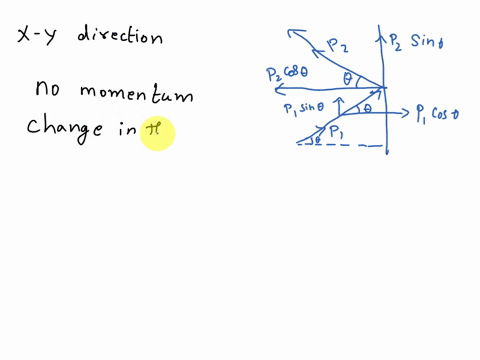 X-Y direction
no momentum
Change in x
P₂
P₂ Sinθ
P₂ Cosθ
θ
P₁ sinθ
θ
P₁ Cosθ
P₁
θ